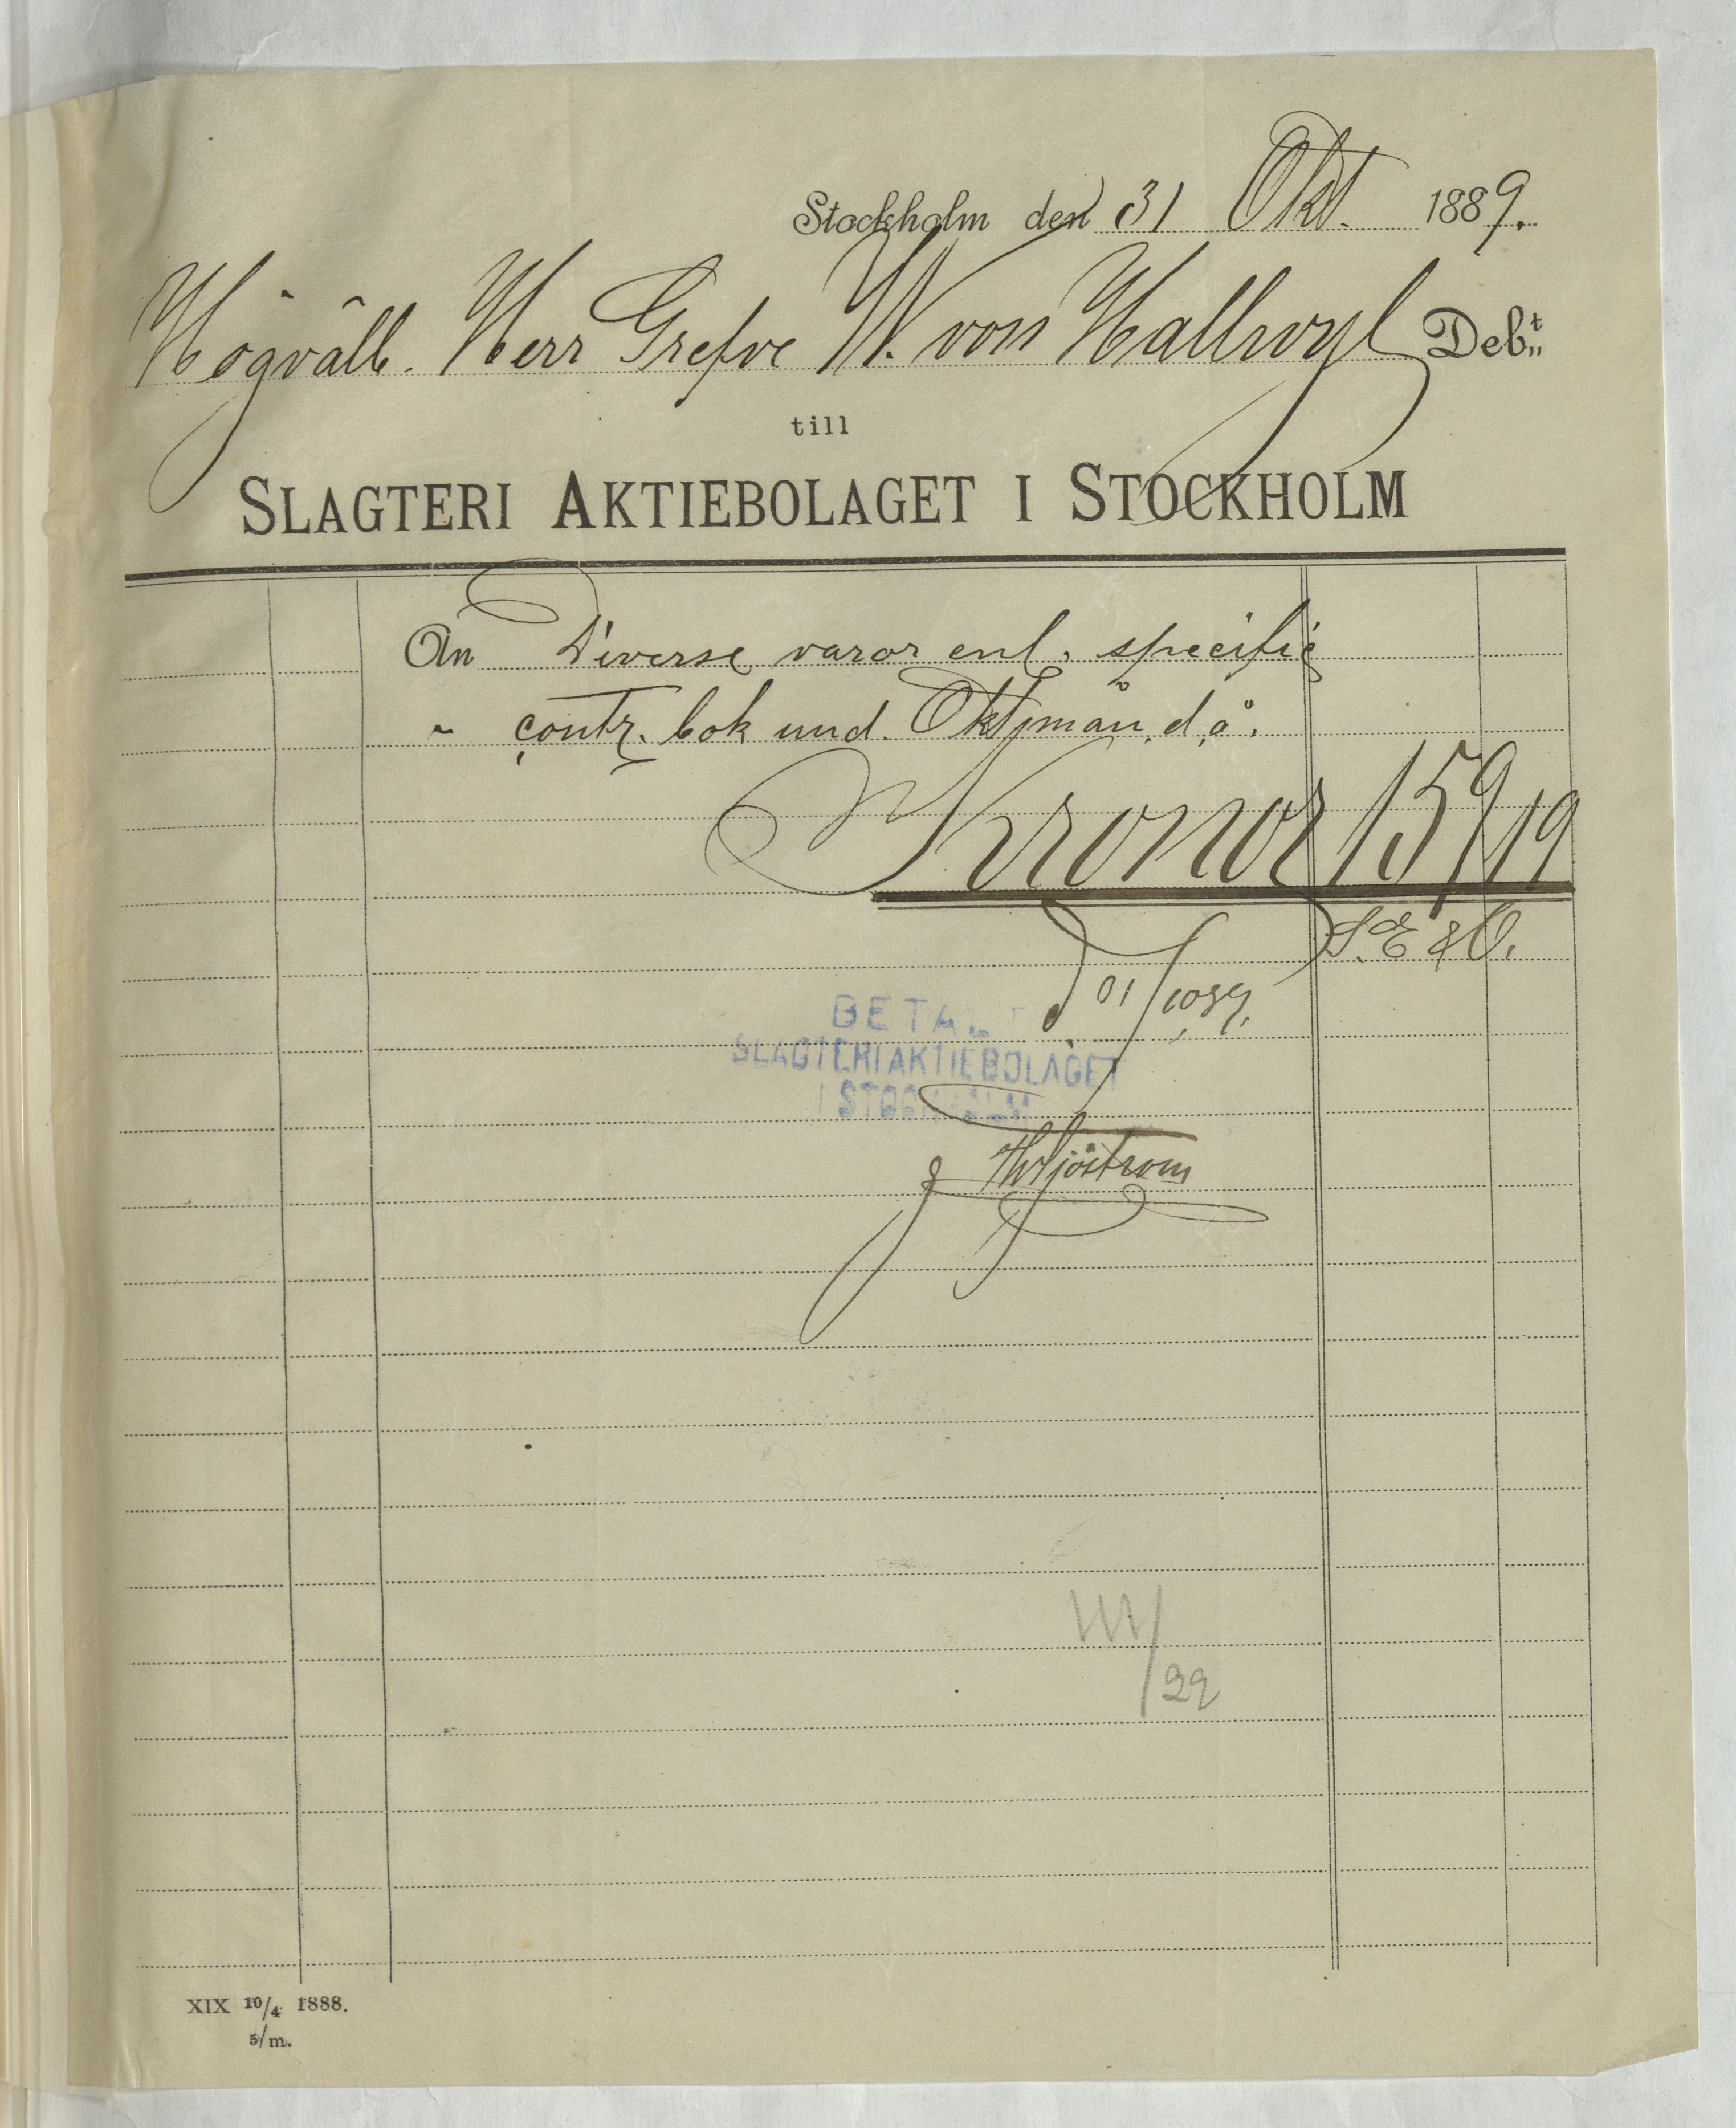 Stockholm den 31 Okt. 1889.
Högvälb. Herr Grefve W. von Hallwyl Deb:t
till
SLAGTERI AKTIEBOLAGET I STOCKHOLM
An Diverse varor enl. specific
" contr. bok und. Okt. mån. d.å.
Kronor 159 19
S.E.&O.
BETALT
SLAGTERIAKTIEBOLAGET
I STOCKHOLM
Sjöström
22
XIX 10/4 1888.
5/m.